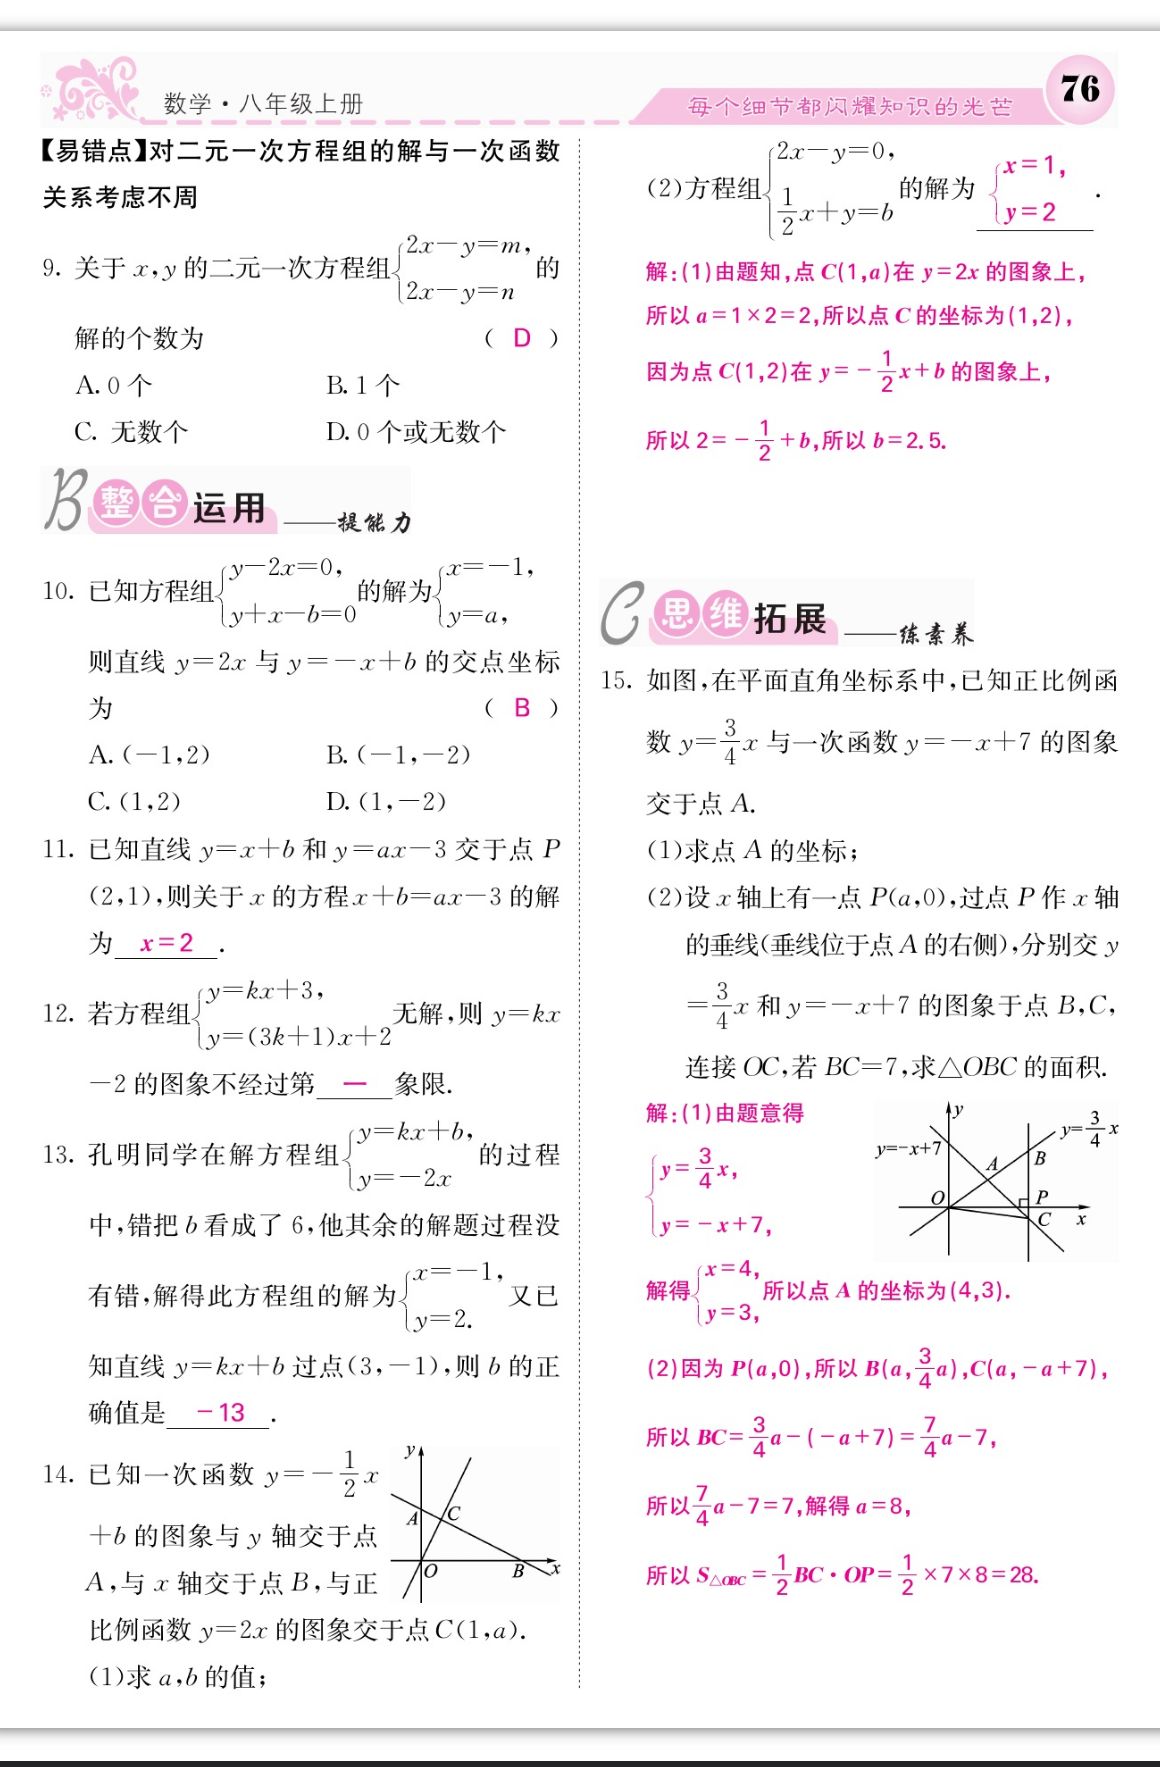 数学·八年级上册
每个细节都闪耀知识的光芒
76
【易错点】对二元一次方程组的解与一次函数
关系考虑不周
9. 关于 x,y 的二元一次方程组{2x-y=m, 2x-y=n 的
解的个数为 ( D )
A. 0 个 B. 1 个
C. 无数个 D. 0 个或无数个
B 整合运用 ——提能力
10. 已知方程组{y-2x=0, y+x-b=0 的解为{x=-1, y=a,
则直线 y=2x 与 y=-x+b 的交点坐标
为 ( B )
A. (-1,2) B. (-1,-2)
C. (1,2) D. (1,-2)
11. 已知直线 y=x+b 和 y=ax-3 交于点 P
(2,1),则关于 x 的方程 x+b=ax-3 的解
为 x=2 .
12. 若方程组{y=kx+3, y=(3k+1)x+2 无解,则 y=kx
-2 的图象不经过第 一 象限.
13. 孔明同学在解方程组{y=kx+b, y=-2x 的过程
中,错把 b 看成了 6,他其余的解题过程没
有错,解得此方程组的解为{x=-1, y=2. 又已
知直线 y=kx+b 过点(3,-1),则 b 的正
确值是 -13 .
14. 已知一次函数 y=-1/2 x
+b 的图象与 y 轴交于点
A,与 x 轴交于点 B,与正
比例函数 y=2x 的图象交于点 C(1,a).
(1)求 a,b 的值;
y
A
C
O
B
x
(2)方程组{2x-y=0, 1/2 x+y=b 的解为 {x=1, y=2 .
解:(1)由题知,点 C(1,a)在 y=2x 的图象上,
所以 a=1×2=2,所以点 C 的坐标为(1,2),
因为点 C(1,2)在 y=-1/2 x+b 的图象上,
所以 2=-1/2+b,所以 b=2.5.
C 思维拓展 ——练素养
15. 如图,在平面直角坐标系中,已知正比例函
数 y=3/4 x 与一次函数 y=-x+7 的图象
交于点 A.
(1)求点 A 的坐标;
(2)设 x 轴上有一点 P(a,0),过点 P 作 x 轴
的垂线(垂线位于点 A 的右侧),分别交 y
=3/4 x 和 y=-x+7 的图象于点 B,C,
连接 OC,若 BC=7,求△OBC 的面积.
解:(1)由题意得
{y=3/4 x,
y=-x+7,
y
y=3/4 x
y=-x+7
A
B
O
P
C
x
解得{x=4, y=3, 所以点 A 的坐标为(4,3).
(2)因为 P(a,0),所以 B(a,3/4 a),C(a,-a+7),
所以 BC=3/4 a-(-a+7)=7/4 a-7,
所以 7/4 a-7=7,解得 a=8,
所以 S△OBC=1/2 BC·OP=1/2×7×8=28.